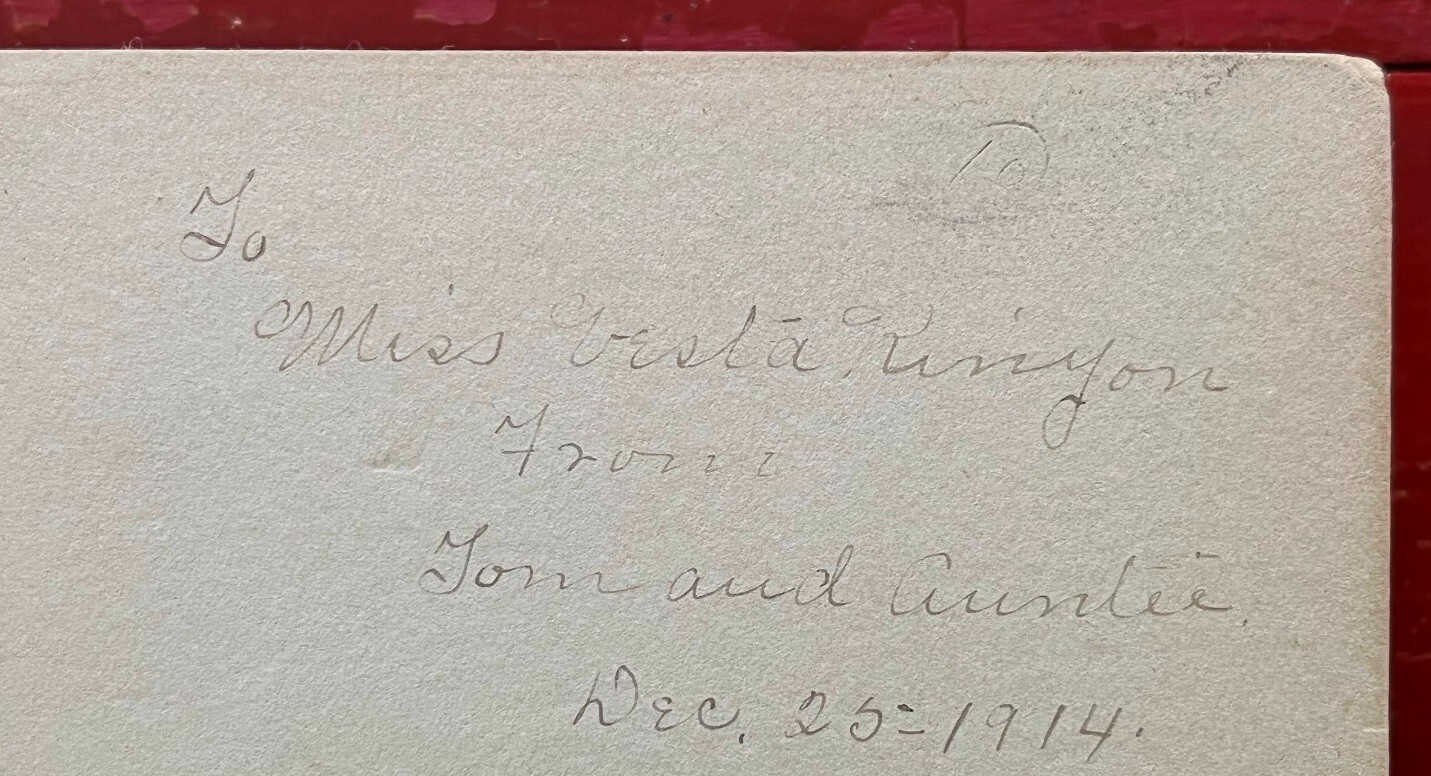 To
Miss Vesta Kinyon
From
Tom and Auntie.
Dec. 25=1914.